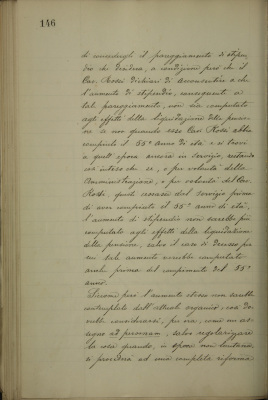 146
di concedergli il pareggiamento di stipen-
dio che desidera, a condizione però che il
Cav. Rossi dichiari di acconsentire a che
l'aumento di stipendio, conseguente a
tale pareggiamento, non sia computato
agli effetti della liquidazione della pensio-
ne se non quando esso Cav. Rossi abbia
compiuto il 55° anno di età e si trovi
a quell'epoca ancora in servizio, restando
inteso che se, o per volontà della
Amministrazione, o per volontà del Cav.
Rossi, questi cessasse dal servizio prima
di aver compiuto il 55° anno di età,
l'aumento di stipendio non sarebbe più
computato agli effetti della liquidazione
della pensione, salvo il caso di decesso per
cui tale aumento sarebbe computato
anche prima del compimento del 55°
anno.
Siccome però l'aumento stesso non sarebbe
contemplato dall'attuale organico, così do-
vrebbe considerarsi, per ora, come un as-
segno ad personam, salvo regolarizzare
la cosa quando, in epoca non lontana,
si procederà ad una completa riforma